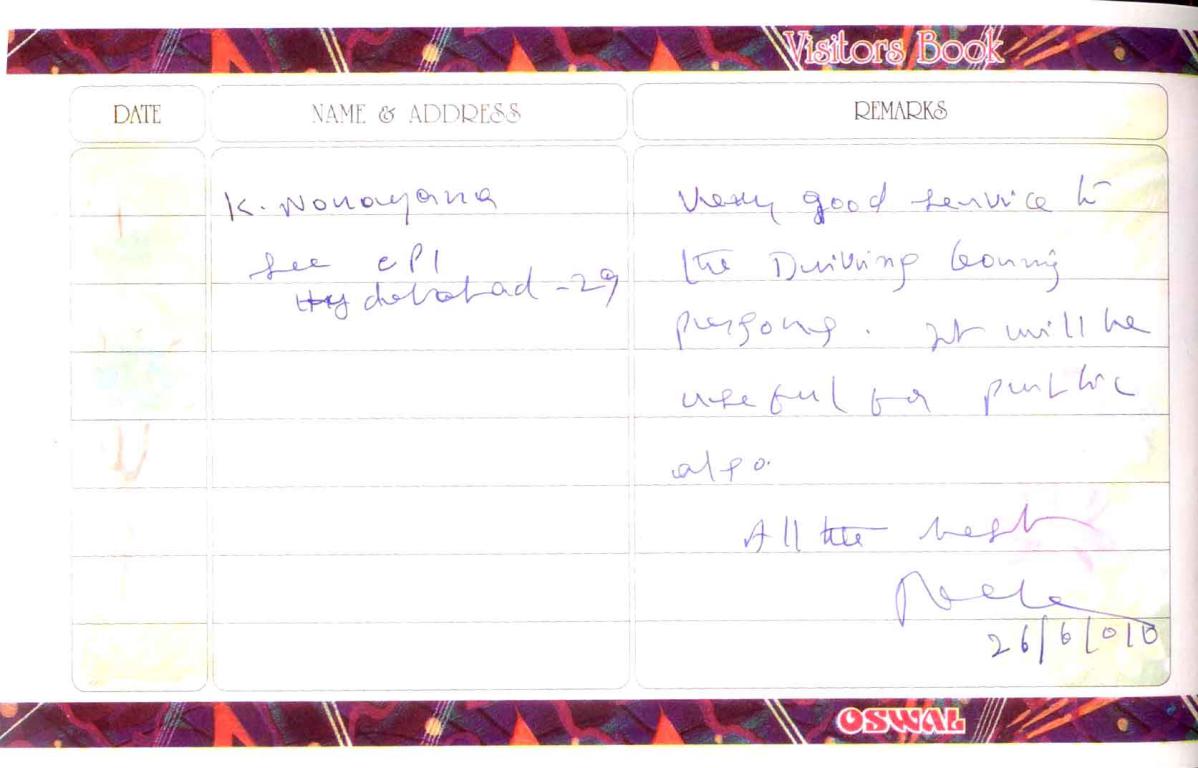 Visitors Book
DATE NAME & ADDRESS REMARKS
K. Narayana
Sec CPI
Hyderabad - 29
Very good service to
the Driving learning
persons. It will be
useful for public
also.
All the best
26/6/010
OSWAL